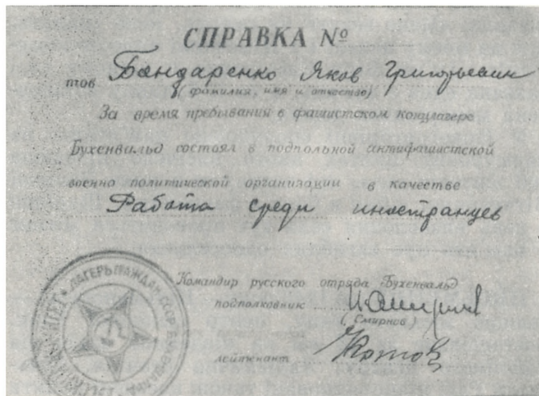 СПРАВКА №
тов Бондаренко Яков Григорьевич
(фамилия, имя и отчество)
За время пребывания в фашистском концлагере
Бухенвальд состоял в подпольной антифашистской
военно политической организации в качестве
Работа среди иностранцев
Командир русского отряда Бухенвальд
подполковник
(Смирнов)
лейтенант Котов
ЛАГЕРЬ ГРАЖДАН СССР